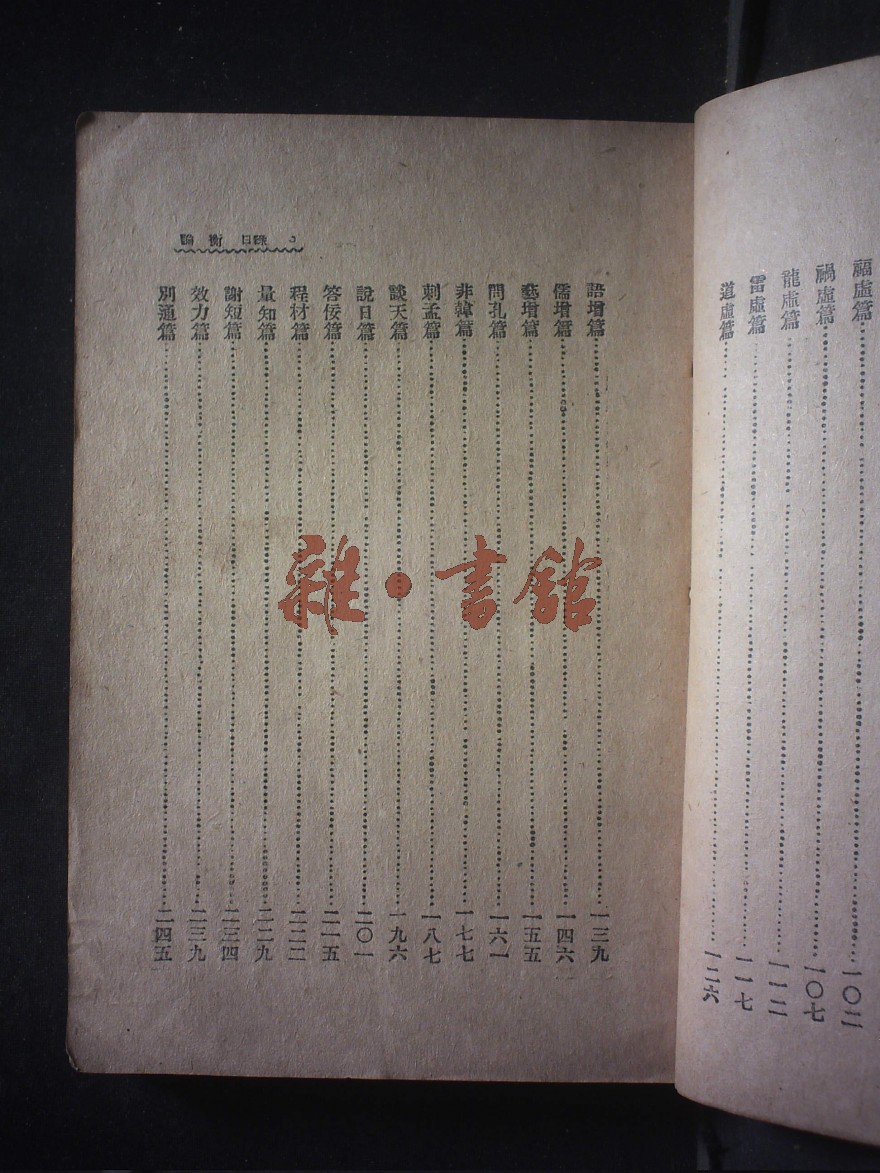 福虛篇…一〇二
禍虛篇…一〇七
龍虛篇…一一二
雷虛篇…一一七
道虛篇…一二六
論衡 目錄
語增篇…一三九
儒增篇…一四六
藝增篇…一五五
問孔篇…一六一
非韓篇…一七七
刺孟篇…一八七
談天篇…一九六
說日篇…二〇一
答佞篇…二一五
程材篇…二二二
量知篇…二二九
謝短篇…二三四
效力篇…二三九
別通篇…二四五
雜·書館